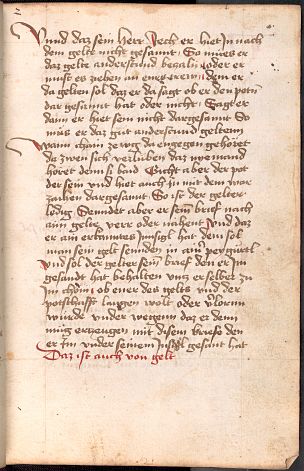 Vnnd daz sein herr Jech er hiet in nach
dem gelt nicht gesannt So mües er
daz gelt anderstund bezaln oder er
müst es ziehen an ener trew dem er
da gelten sol daz er da sagt ob er den poten
dar gesannt hat oder nicht Sagt er
dann er hiet sein nicht dargesannt So
müs er daz gut anderstund geltenn
Wann chain zewg da engegen gehöret
da zwen sich verliuben daz nyemand
höret denn si baid Lucht aber der pot
der sein vnd hiet auch in mit dem wor
zaichen dargesannt So ist der gelter
ledig Senndet aber er sein brief nach
aim gelte verr oder nahent Vnd daz
er ain erkanntes Junsigl hat dem sol
man sein gelt sennden in aim peygürtl
Vnd sol der gelter sein brief den er Jm
gesandt hat behalten vntz er selber zu
Jm chöm ob ener des gelts vnd der
potschafft laugen wolt oder verlorn
würde vnder wegenn daz er denn
müg erzeugen mit disem briefe den
er Jm vnder seinem Jnsigl gesant hat
Daz ist auch von gelt